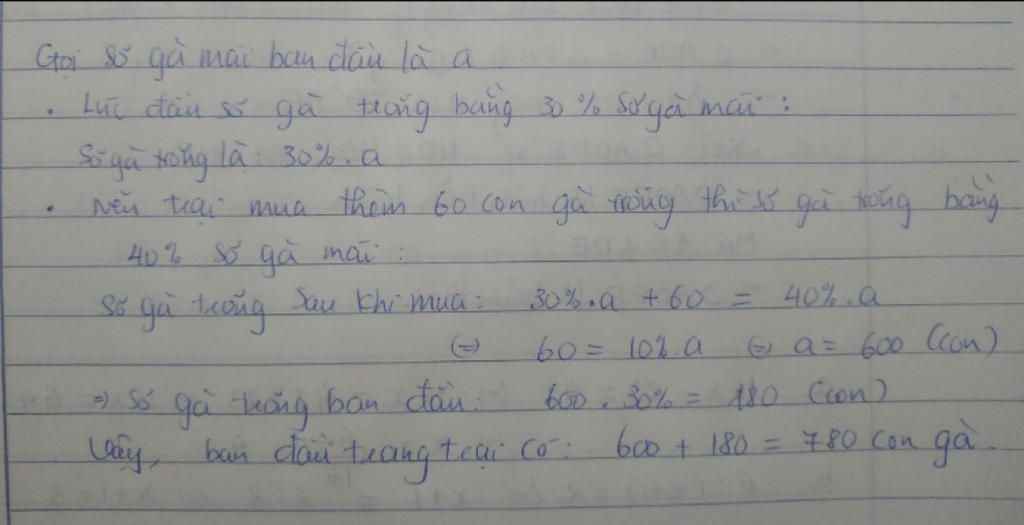 Gọi số gà mái ban đầu là a
• Lúc đầu số gà trống bằng 30% số gà mái:
Số gà trống là: 30%.a
• Nếu trại mua thêm 60 con gà trống thì số gà trống bằng
40% số gà mái:
Số gà trống sau khi mua: 30%.a + 60 = 40%.a
(=) 60 = 10%.a (=) a = 600 (con)
=> Số gà trống ban đầu: 600.30% = 180 (con)
Vậy, ban đầu trang trại có: 600 + 180 = 780 con gà.